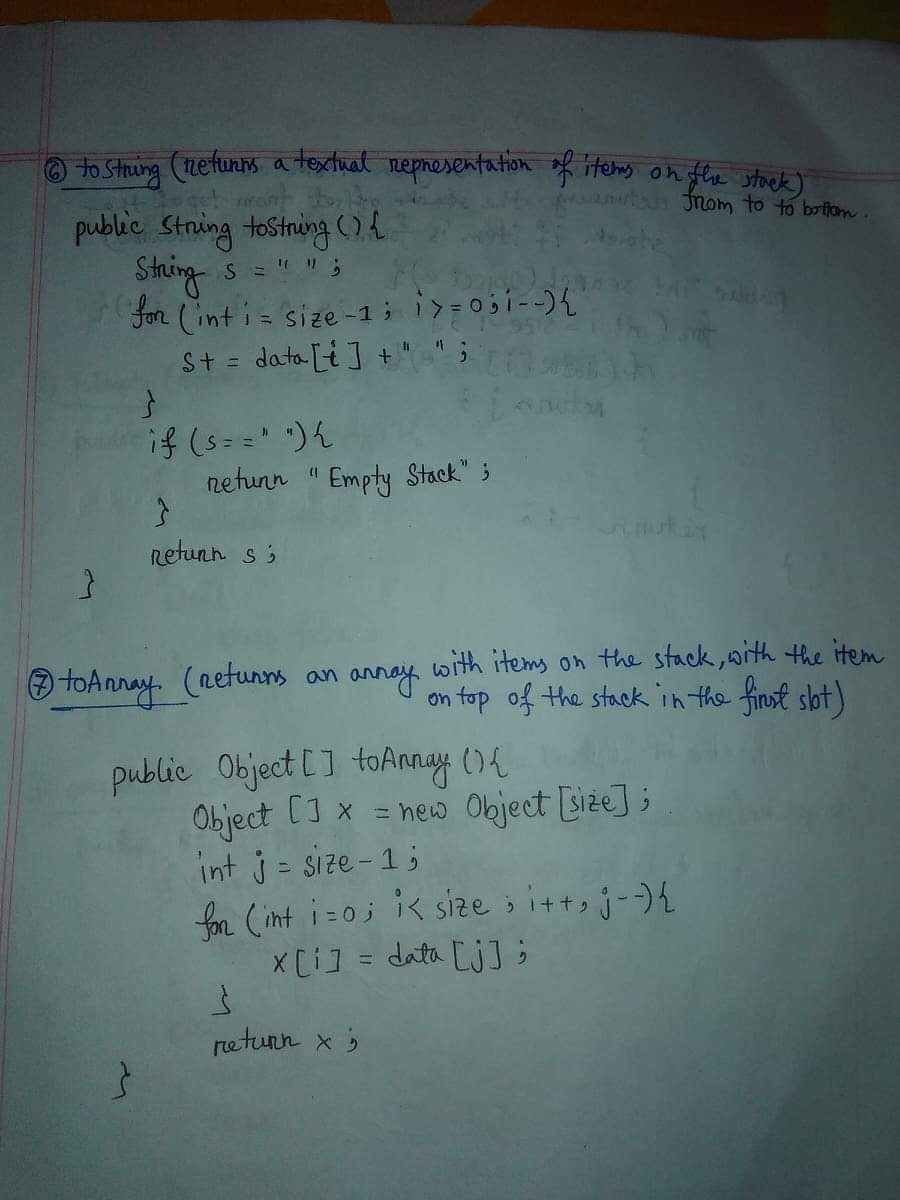 ⑥ toString (returns a textual representation of items on the stack)
from to to bottom.
public String toString () {
String s = " " ;
for (int i = size -1 ; i >= 0 ; i--) {
s+ = data [i] + " " ;
}
if (s == " ") {
return " Empty Stack" ;
}
return s ;
}
⑦ toArray (returns an array with items on the stack, with the item
on top of the stack in the first slot)
public Object [ ] toArray () {
Object [ ] x = new Object [size] ;
int j = size - 1 ;
for (int i = 0 ; i < size ; i++, j--) {
x [i] = data [j] ;
}
return x ;
}